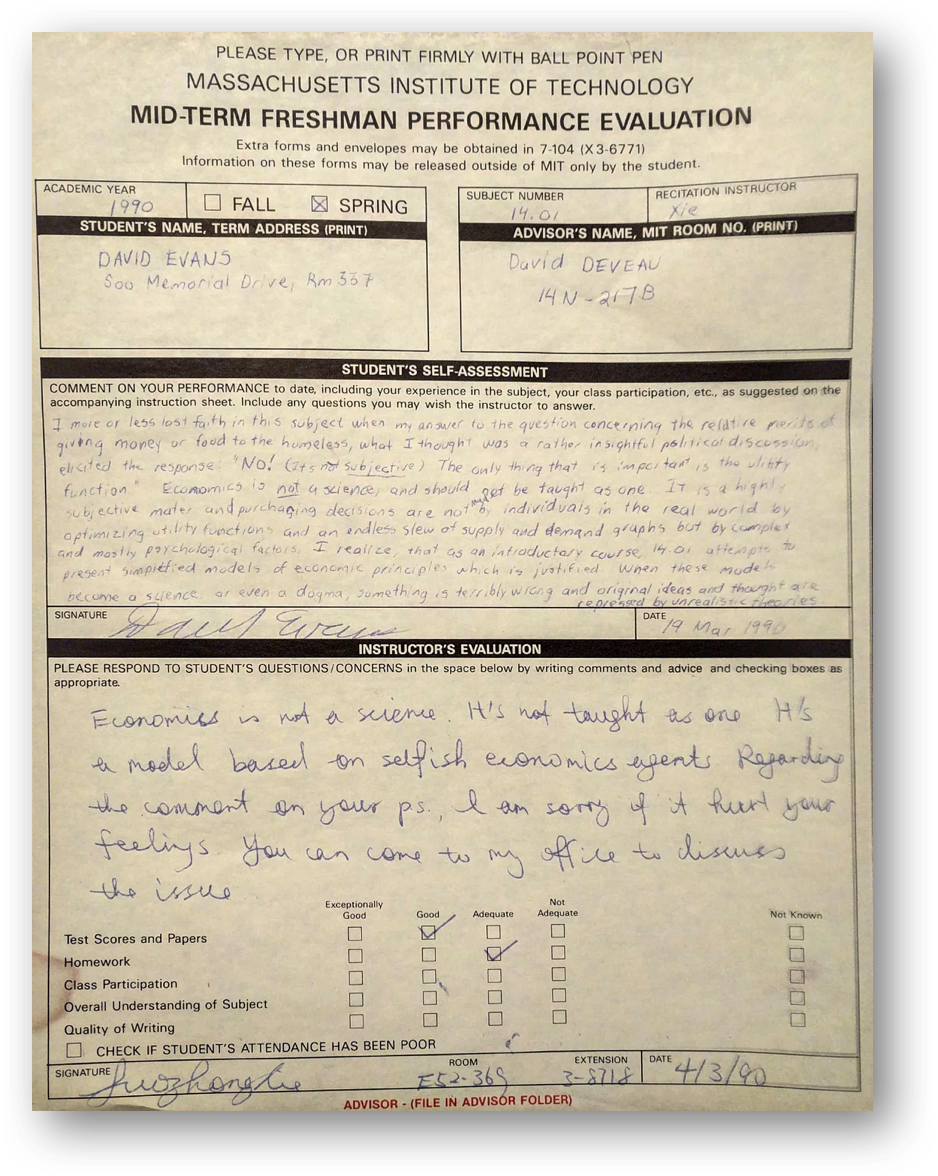 PLEASE TYPE, OR PRINT FIRMLY WITH BALL POINT PEN
MASSACHUSETTS INSTITUTE OF TECHNOLOGY
MID-TERM FRESHMAN PERFORMANCE EVALUATION
Extra forms and envelopes may be obtained in 7-104 (X 3-6771)
Information on these forms may be released outside of MIT only by the student.
ACADEMIC YEAR
1990
FALL
SPRING
SUBJECT NUMBER
14.01
RECITATION INSTRUCTOR
Xie
STUDENT'S NAME, TERM ADDRESS (PRINT)
DAVID EVANS
500 Memorial Drive, Rm 337
ADVISOR'S NAME, MIT ROOM NO. (PRINT)
David DEVEAU
14N-217B
STUDENT'S SELF-ASSESSMENT
COMMENT ON YOUR PERFORMANCE to date, including your experience in the subject, your class participation, etc., as suggested on the
accompanying instruction sheet. Include any questions you may wish the instructor to answer.
I more or less lost faith in this subject when my answer to the question concerning the relative merits of
giving money or food to the homeless, what I thought was a rather insightful political discussion,
elicited the response: "NO! (Its not subjective) The only thing that is important is the utility
function" Economics is not a science, and should not be taught as one. It is a highly
subjective mater and purchasing decisions are not made by individuals in the real world by
optimizing utility functions and an endless slew of supply and demand graphs but by complex
and mostly psychological factors. I realize, that as an introductory course, 14.01 attempts to
present simplified models of economic principles which is justified. When these models
become a science, or even a dogma, something is terribly wrong and original ideas and thought are
repressed by unrealistic theories
SIGNATURE
David Evans
DATE
19 Mar 1990
INSTRUCTOR'S EVALUATION
PLEASE RESPOND TO STUDENT'S QUESTIONS/CONCERNS in the space below by writing comments and advice and checking boxes as
appropriate.
Economics is not a science. It's not taught as one It's
a model based on selfish economics agents. Regarding
the comment on your p.s., I am sorry if it hurt your
feelings. You can come to my office to discuss
the issue
Exceptionally Good
Good
Adequate
Not Adequate
Not Known
Test Scores and Papers
Homework
Class Participation
Overall Understanding of Subject
Quality of Writing
CHECK IF STUDENT'S ATTENDANCE HAS BEEN POOR
SIGNATURE
ROOM
E52-369
EXTENSION
3-8718
DATE
4/3/90
ADVISOR - (FILE IN ADVISOR FOLDER)